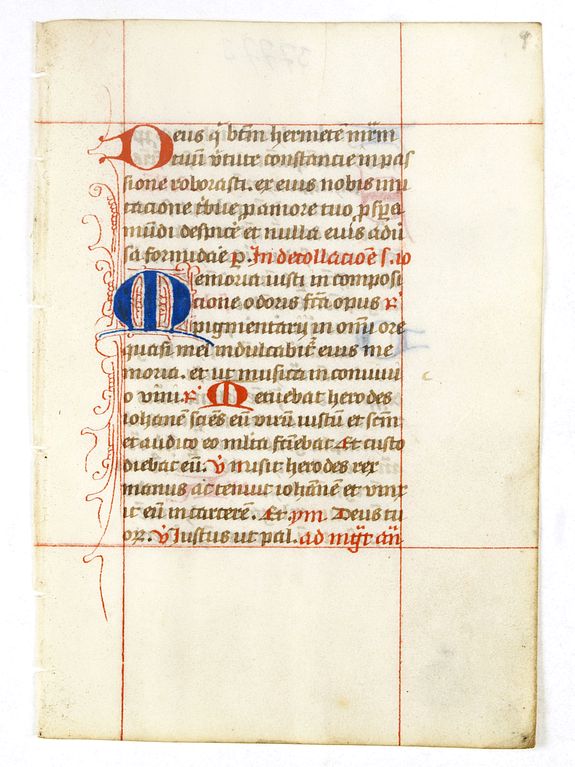 Deus q btm hermetē mrm
tuū v̄tute constancie in pas
sione roborasti. ex eius nobis imi
tacione tbue p amore tuo p̄spa
mūdi despicē et nulla eius adū
sa formidaē p. In decollacioē s. io
Memoria iusti in composi
cione odoris fcā opus r̄
pigmentarij in om̄i ore
quasi mel indulcabit̄ eius me
moria. et ut musica in conuiui
o vini. r̄ Metuebat herodes
iohanē sciēs eū virū iustū et scm̄
et audito eo mlta fciebat Et custo
diebat eū. v̄ misit herodes rex
manus ac tenuit iohānē et vinx
it eū in carcere. Et ym̄ Deus tu
oꝝ. v̄ Iustus ut pal. ad mḡt an̄